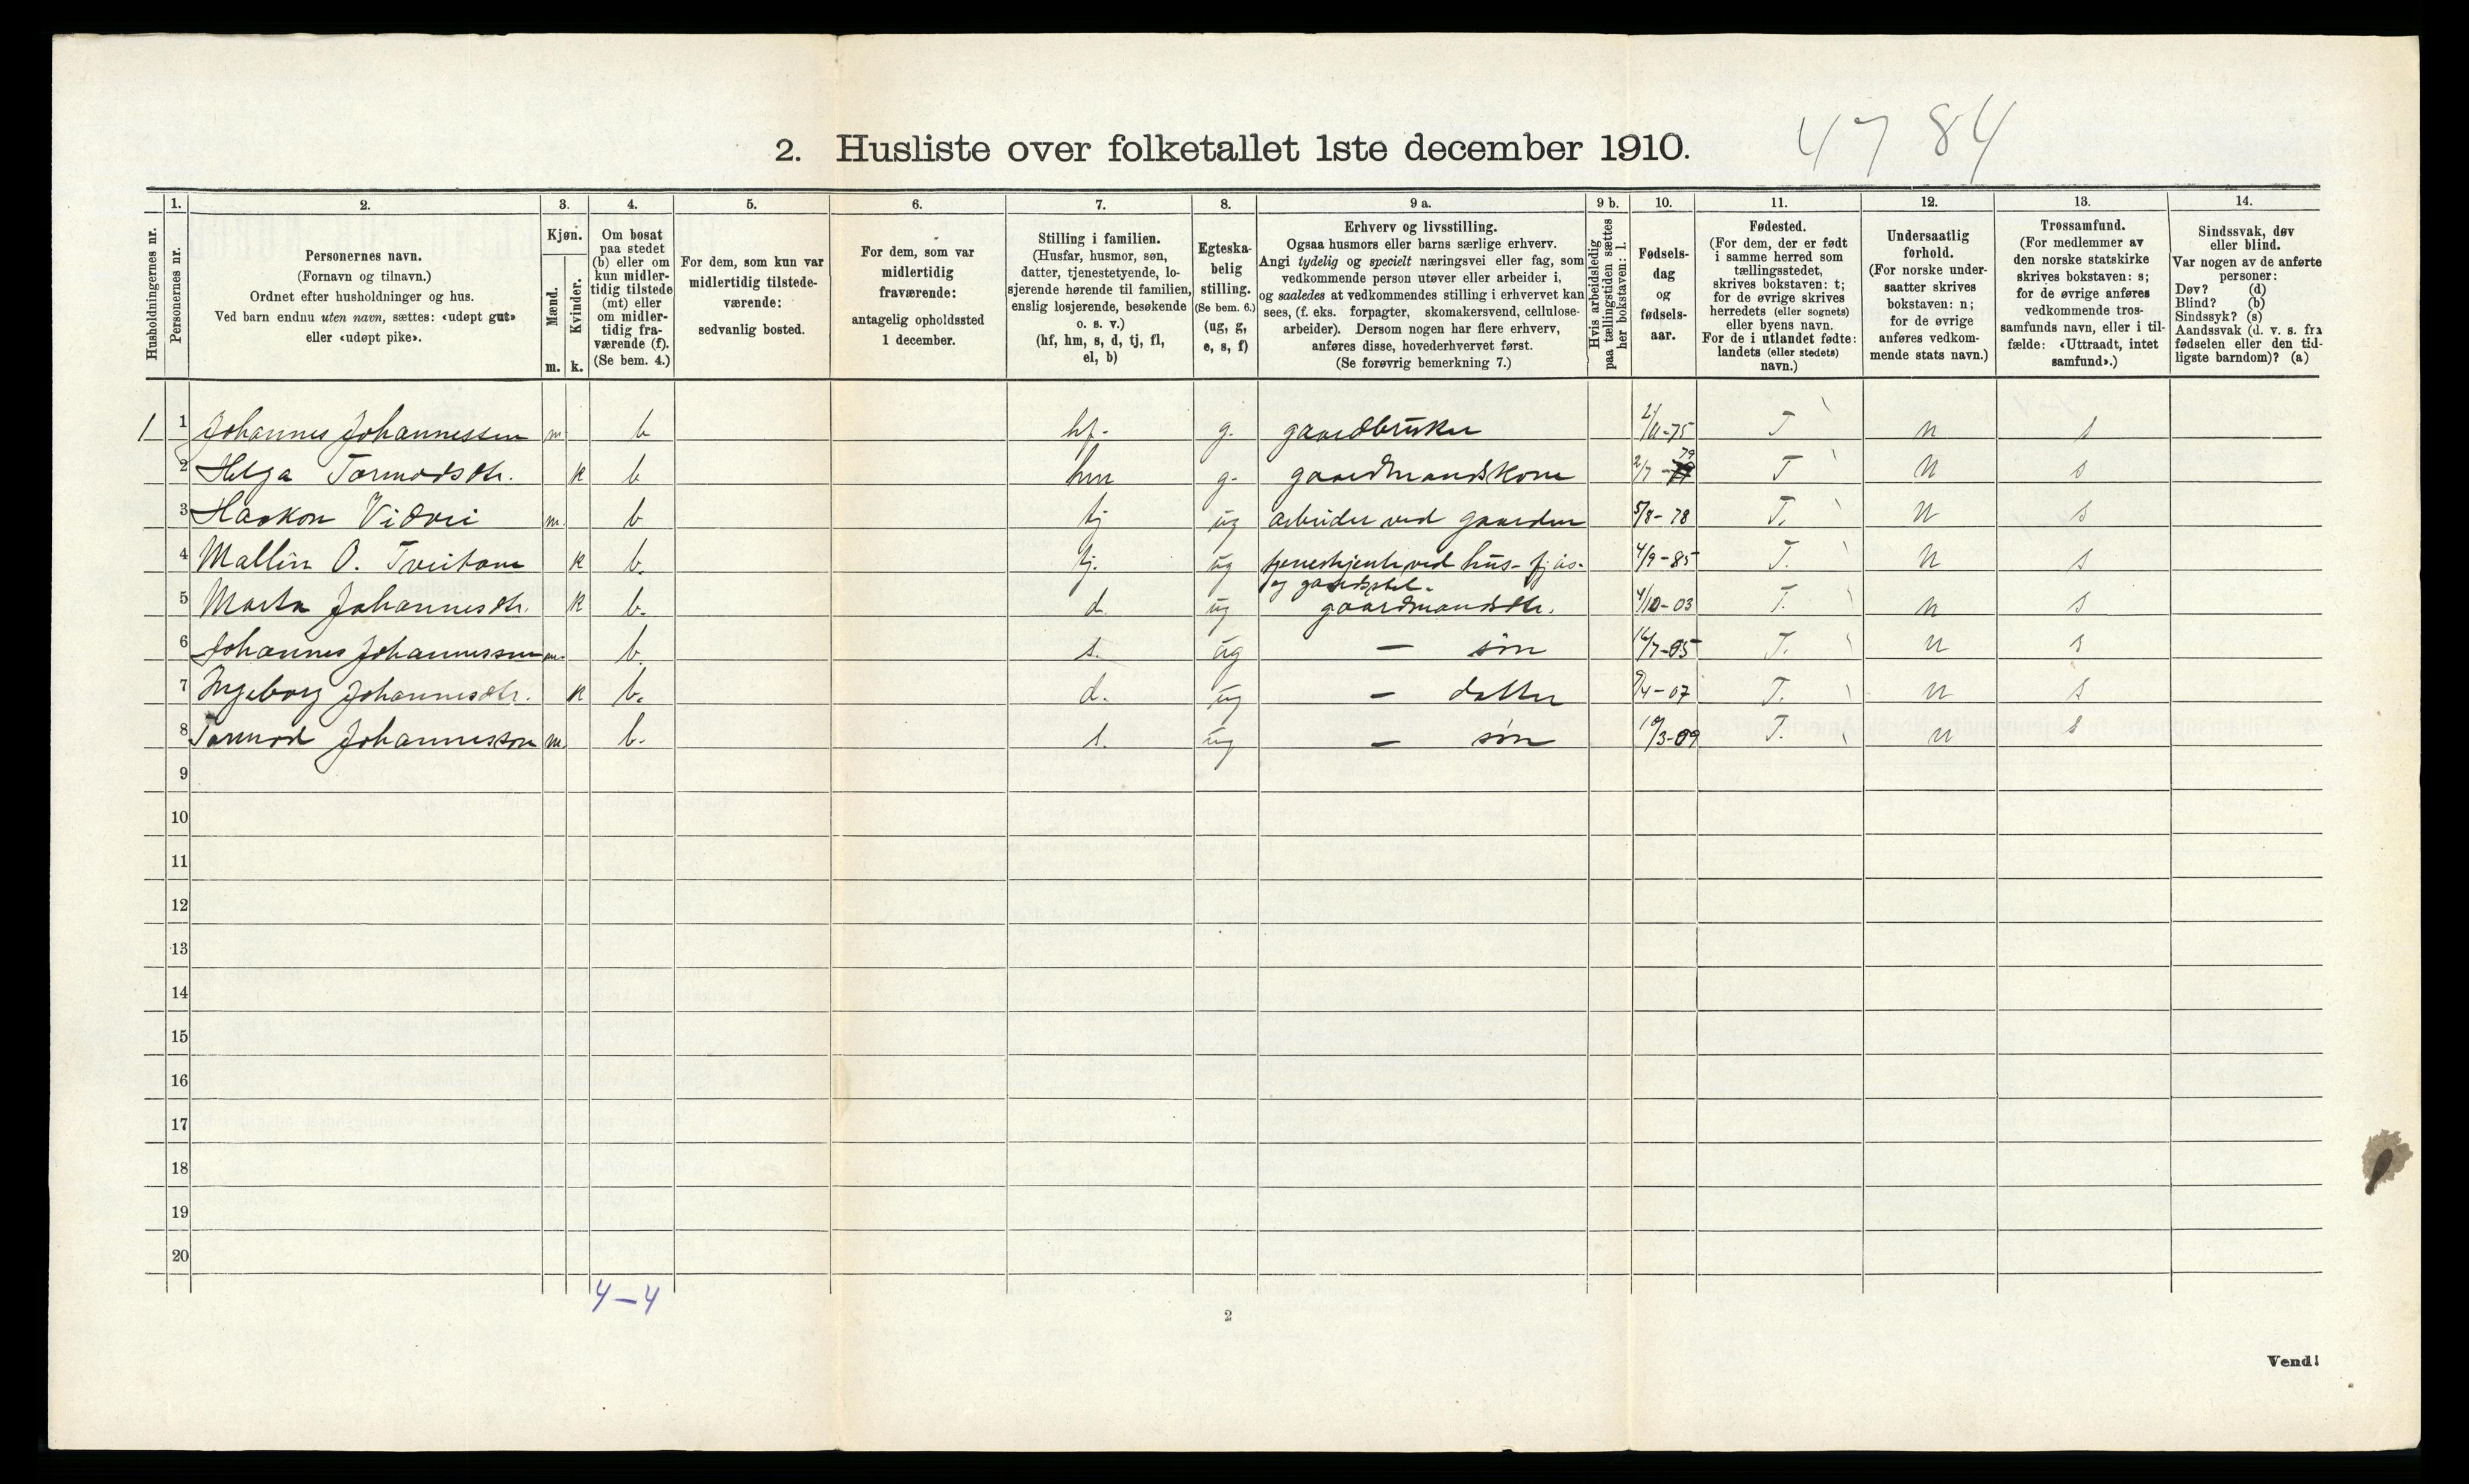 4784
2. Husliste over folketallet 1ste december 1910.
Husholdningernes nr.
1.
Personernes nr.
2.
Personernes navn.
(Fornavn og tilnavn.)
Ordnet efter husholdninger og hus.
Ved barn endnu uten navn, sættes: «udøpt gut»
eller «udøpt pike».
3.
Kjøn.
Mænd.
Kvinder.
m. k.
4.
Om bosat
paa stedet
(b) eller om
kun midler-
tidig tilstede
(mt) eller
om midler-
tidig fra-
værende (f).
(Se bem. 4.)
5.
For dem, som kun var
midlertidig tilstede-
værende:
sedvanlig bosted.
6.
For dem, som var
midlertidig
fraværende:
antagelig opholdssted
1 december.
7.
Stilling i familien.
(Husfar, husmor, søn,
datter, tjenestetyende, lo-
sjerende hørende til familien,
enslig losjerende, besøkende
o. s. v.)
(hf, hm, s, d, tj, fl,
el, b)
8.
Egteska-
belig
stilling.
(Se bem. 6.)
(ug, g,
e, s, f)
9 a.
Erhverv og livsstilling.
Ogsaa husmors eller barns særlige erhverv.
Angi tydelig og specielt næringsvei eller fag, som
vedkommende person utøver eller arbeider i,
og saaledes at vedkommendes stilling i erhvervet kan
sees, (f. eks. forpagter, skomakersvend, cellulose-
arbeider). Dersom nogen har flere erhverv,
anføres disse, hovederhvervet først.
(Se forøvrig bemerkning 7.)
9 b.
Hvis arbeidsledig
paa tællingstiden sættes
her bokstaven: l.
10.
Fødsels-
dag
og
fødsels-
aar.
11.
Fødested.
(For dem, der er født
i samme herred som
tællingsstedet,
skrives bokstaven: t;
for de øvrige skrives
herredets (eller sognets)
eller byens navn.
For de i utlandet fødte:
landets (eller stedets)
navn.)
12.
Undersaatlig
forhold.
(For norske under-
saatter skrives
bokstaven: n;
for de øvrige
anføres vedkom-
mende stats navn.)
13.
Trossamfund.
(For medlemmer av
den norske statskirke
skrives bokstaven: s;
for de øvrige anføres
vedkommende tros-
samfunds navn, eller i til-
fælde: «Uttraadt, intet
samfund».)
14.
Sindssvak, døv
eller blind.
Var nogen av de anførte
personer:
Døv? (d)
Blind? (b)
Sindssyk? (s)
Aandssvak (d. v. s. fra
fødselen eller den tid-
ligste barndom)? (a)
1 1 Johannes Johannessen m b hf. g. gaardbruker 2/11-75 T n s
2 Helga Tormodsdtr. k b hm g. gaardmandskone 2/7-79 T n s
3 Haakon Vidvei m. b tj ug arbeider ved gaarden 5/8-78 T. n s
4 Mallin O. Tveitane k b. tj. ug tjenestjente ved hus- fjøs- 4/9-85 T. n s
og gaardsstel.
5 Marta Johannesdtr. k b. d. ug gaardmandsdtr. 4/10-03 T. n s
6 Johannes Johannessen m. b. s. ug — søn 16/7-05 T. n s
7 Ingeborg Johannesdtr. k b. d. ug — datter 9/4-07 T. n s
8 Tormod Johannesson m. b. s. ug — søn 10/3-09 T. n s
9
10
11
12
13
14
15
16
17
18
19
20
4-4
2
Vend!